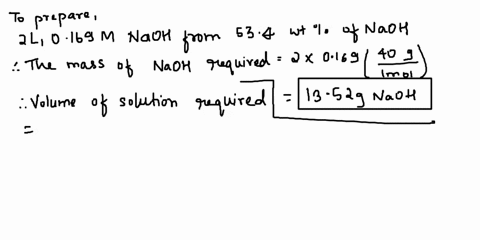 To prepare,
2L, 0.169 M NaOH from 53.4 wt % of NaOH
∴ The mass of NaOH required = 2 x 0.169 (40 g / 1mol)
∴ Volume of solution required = 13.52g NaOH
=